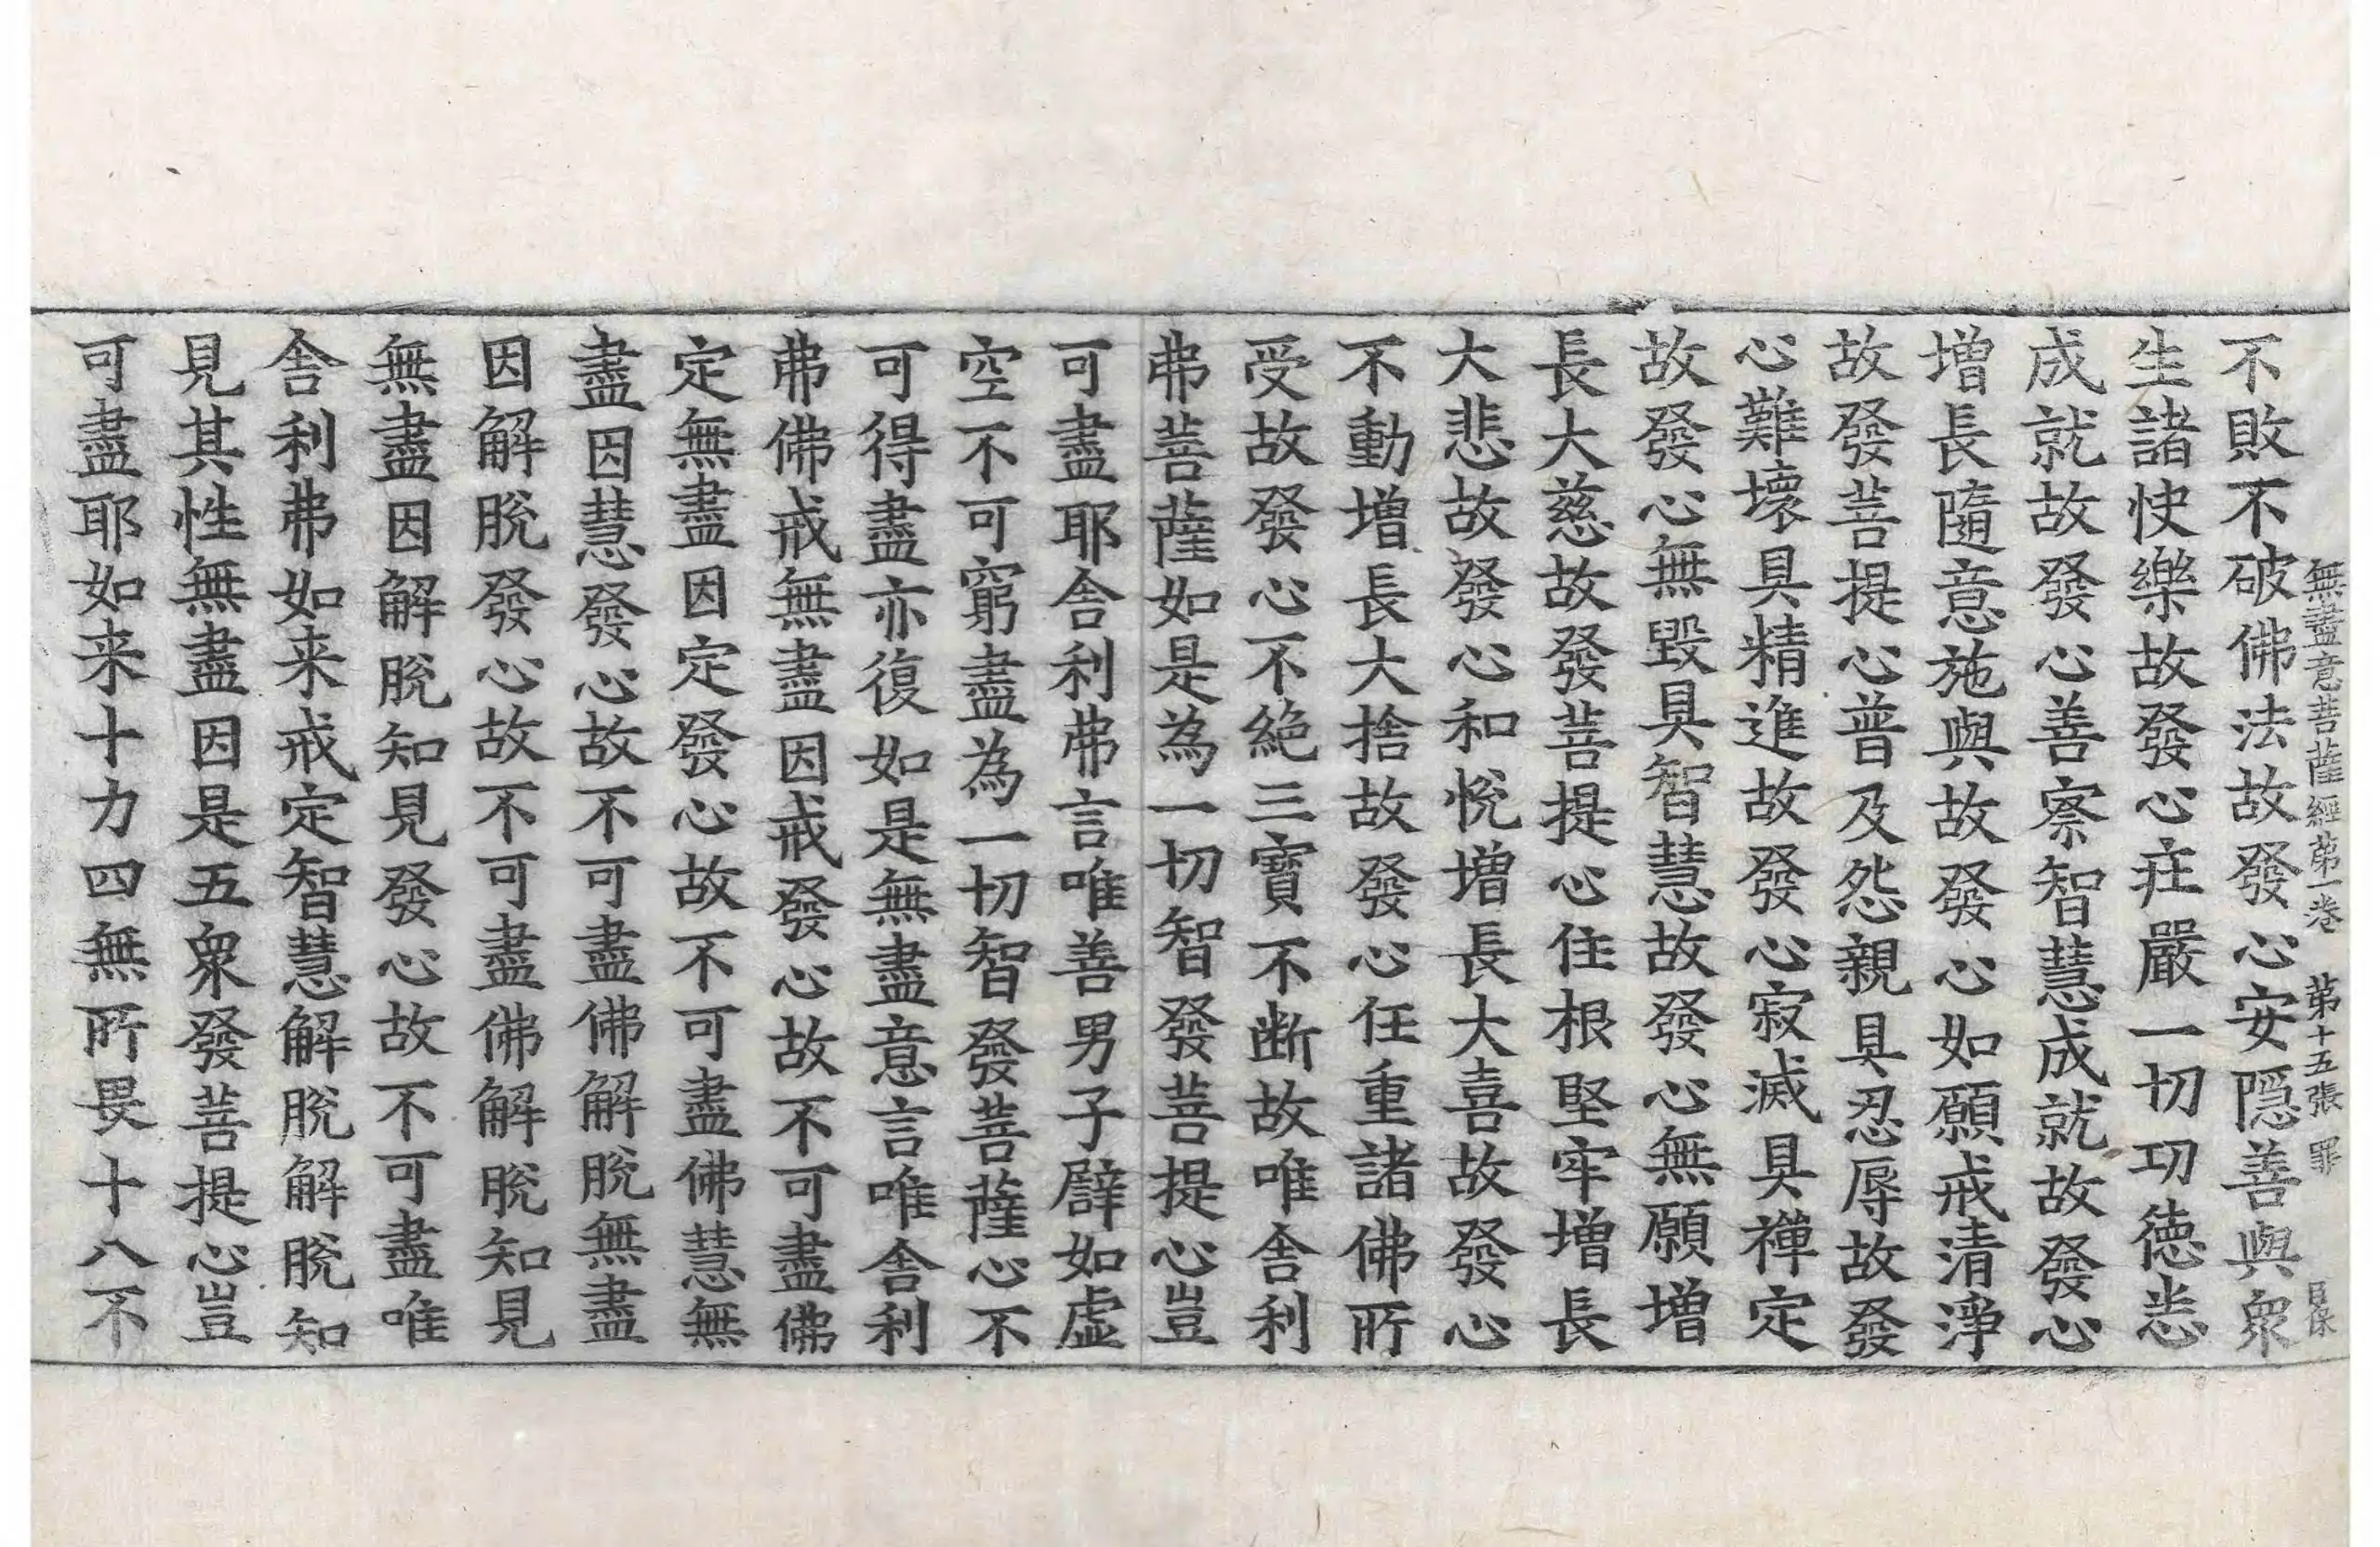 無盡意菩薩經第一卷 第十五張 罪
不敗不破佛法故發心安隱善與衆
生諸快樂故發心疘嚴一切功德恙
成就故發心善察智慧成就故發心
增長隨意施與故發心如願戒清淨
故發菩提心普及怨親具忍辱故發
心難壞具精進故發心寂滅具禪定
故發心無毀具智慧故發心無願增
長大慈故發菩提心住根堅牢增長
大悲故發心和悅增長大喜故發心
不動增長大捨故發心任重諸佛所
受故發心不絶三寶不斷故唯舍利
弗菩薩如是為一切智發菩提心豈
可盡耶舍利弗言唯善男子譬如虛
空不可窮盡為一切智發菩薩心不
可得盡亦復如是無盡意言唯舍利
弗佛戒無盡因戒發心故不可盡佛
定無盡因定發心故不可盡佛慧無
盡因慧發心故不可盡佛解脫無盡
因解脫發心故不可盡佛解脫知見
無盡因解脫知見發心故不可盡唯
舍利弗如来戒定智慧解脫解脫知
見其性無盡因是五衆發菩提心豈
可盡耶如来十力四無所畏十八不